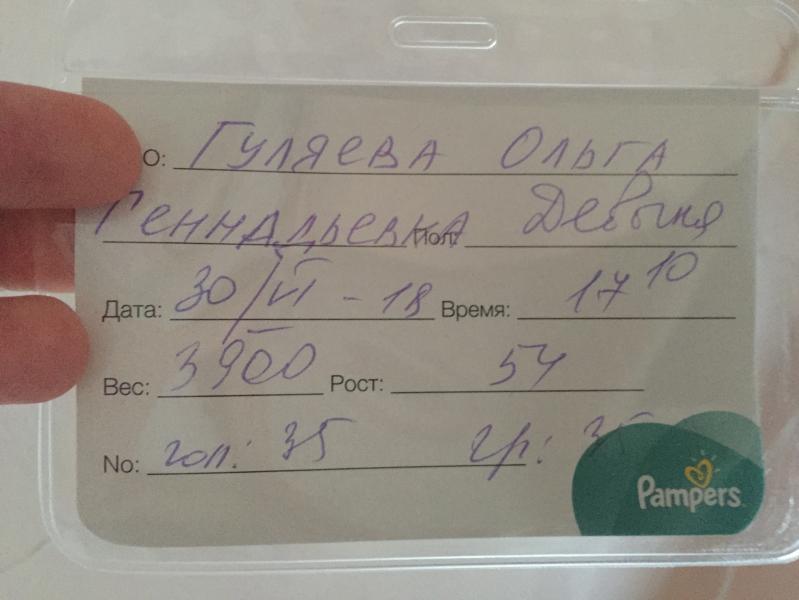 О: Гуляева Ольга
Геннадьевна Пол: Девочка
Дата: 30/VI - 18 Время: 17 10
Вес: 3900 Рост: 54
No: гол: 35 гр: 35
Pampers